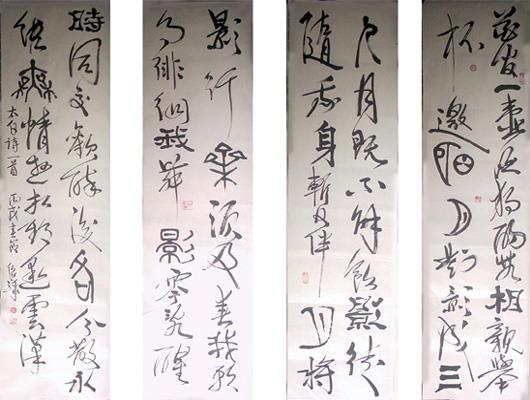 花間一壺酒獨酌無相親舉
杯邀明月對影成三
人月既不解飲影徒
隨我身暫伴月將
影行樂須及春我歌
月徘徊我舞影零亂醒
時同交歡醉後各分散永
結無情遊相期邈雲漢
太白詩一首 丙戌春節